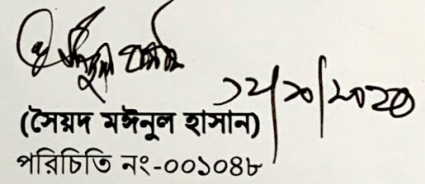 ১২/১০/২০২০
(সৈয়দ মঈনুল হাসান)
পরিচিতি নং-০০১০৪৮